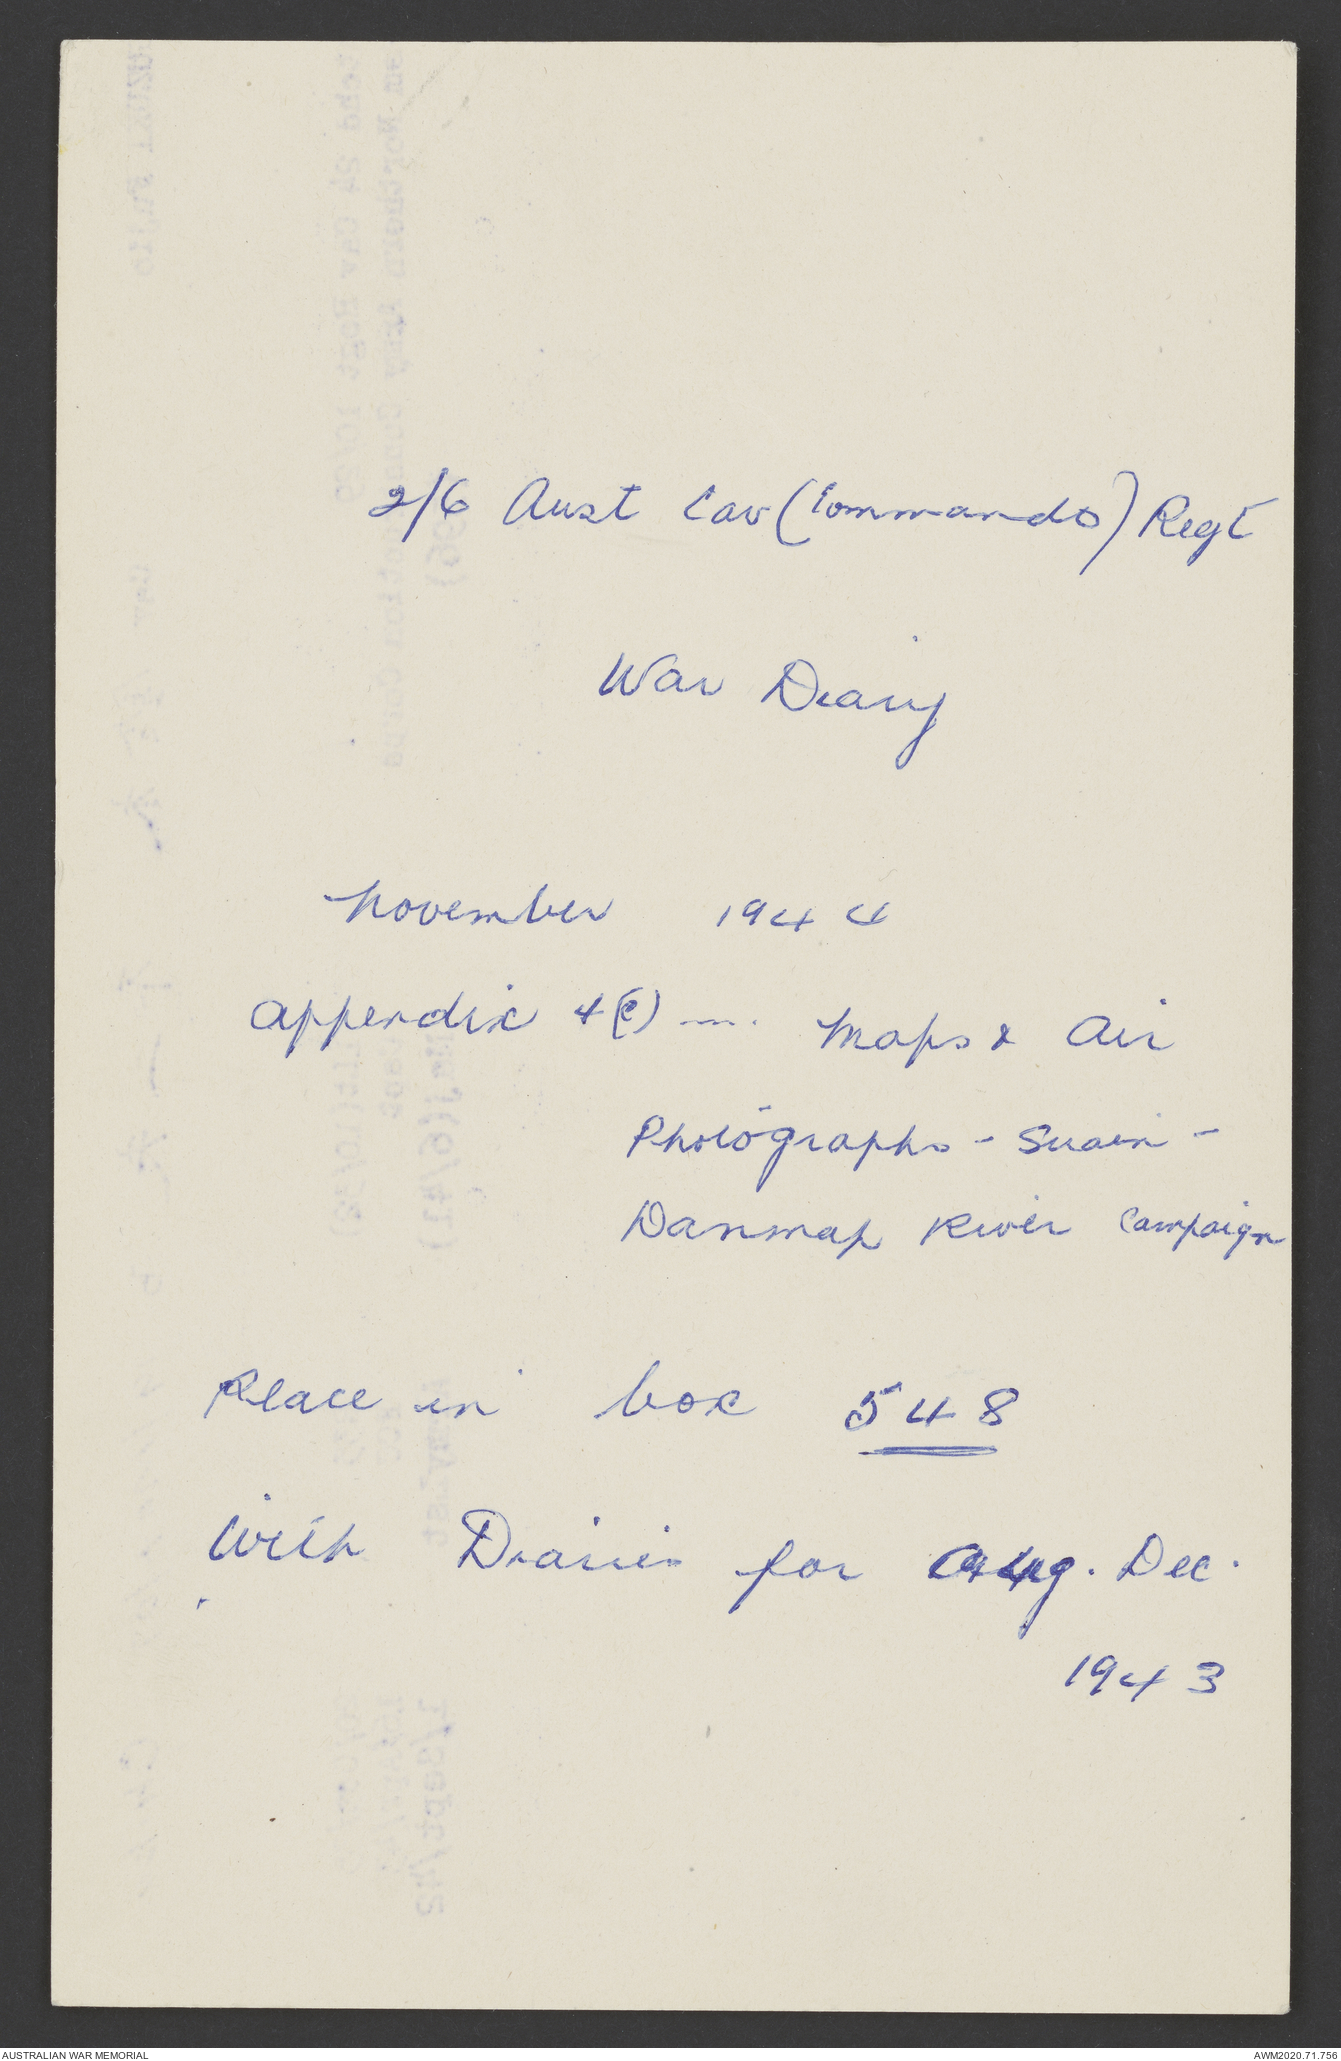 2/6 Aust Cav (Commando) Regt
War Diary
November 1944
Appendix 4(C) —. Maps & Air
Photographs - Suain -
Danmap River Campaign
Place in box 548
With Diaries for Aug. Dec.
1943
AUSTRALIAN WAR MEMORIAL
AWM2020.71.756